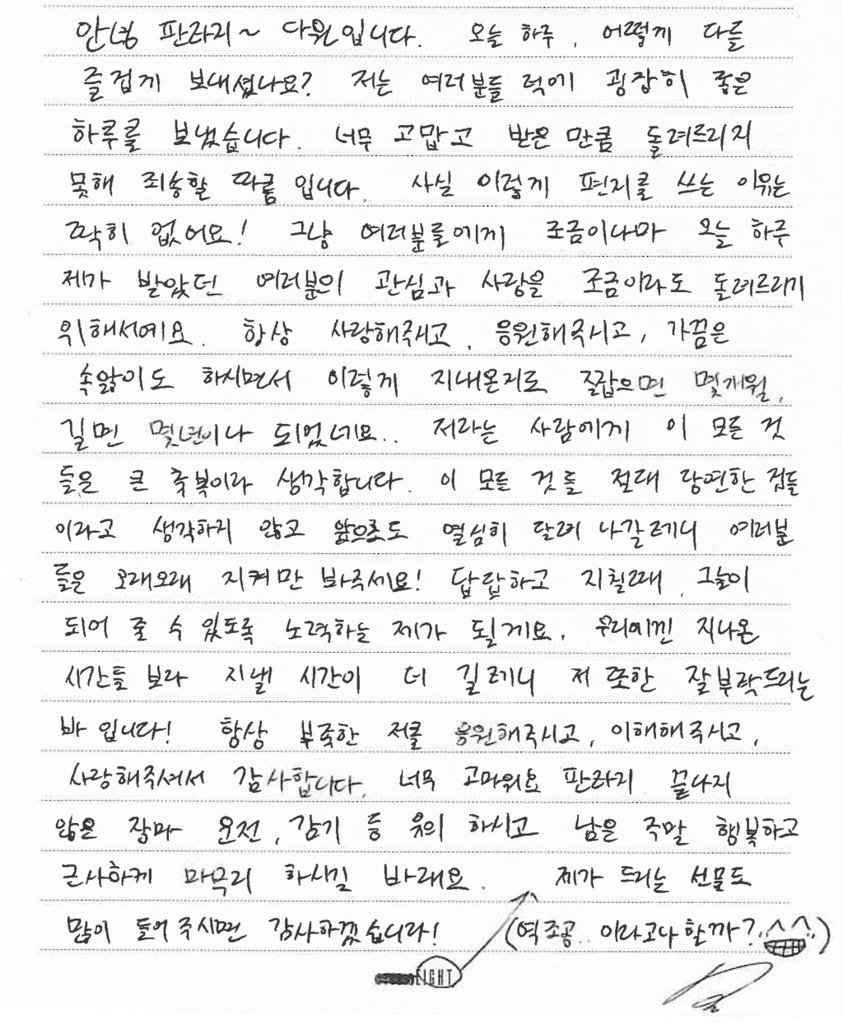 안녕 판타지~ 다원입니다. 오늘 하루, 어떻게 다들
즐겁게 보내셨나요? 저는 여러분들 덕에 굉장히 좋은
하루를 보냈습니다. 너무 고맙고 받은 만큼 돌려드리지
못해 죄송할 따름입니다. 사실 이렇게 편지를 쓰는 이유는
딱히 없어요! 그냥 여러분들에게 조금이나마 오늘 하루
제가 받았던 여러분의 관심과 사랑을 조금이라도 돌려드리기
위해서예요. 항상 사랑해주시고, 응원해주시고, 가끔은
속앓이도 하시면서 이렇게 지내온지도 짧으면 몇개월,
길면 몇년이나 되었네요.. 저라는 사람에게 이 모든 것
들은 큰 축복이라 생각합니다. 이 모든 것을 절대 당연한 점들
이라고 생각하지 않고 앞으로도 열심히 달려 나갈테니 여러분
들은 오래오래 지켜만 봐주세요! 답답하고 지칠때, 그늘이
되어 줄 수 있도록 노력하는 제가 될게요. 우리에겐 지나온
시간들 보다 지낼 시간이 더 길테니 저 또한 잘부탁드리는
바 입니다! 항상 부족한 저를 응원해주시고, 이해해주시고,
사랑해주셔서 감사합니다. 너무 고마워요 판타지 끝나지
않은 장마 운전, 감기 등 유의 하시고 남은 주말 행복하고
근사하게 마무리 하시길 바래요. 제가 드리는 선물도
많이 들어주시면 감사하겠습니다! (역조공.. 이라고나 할까?^^)
LIGHT